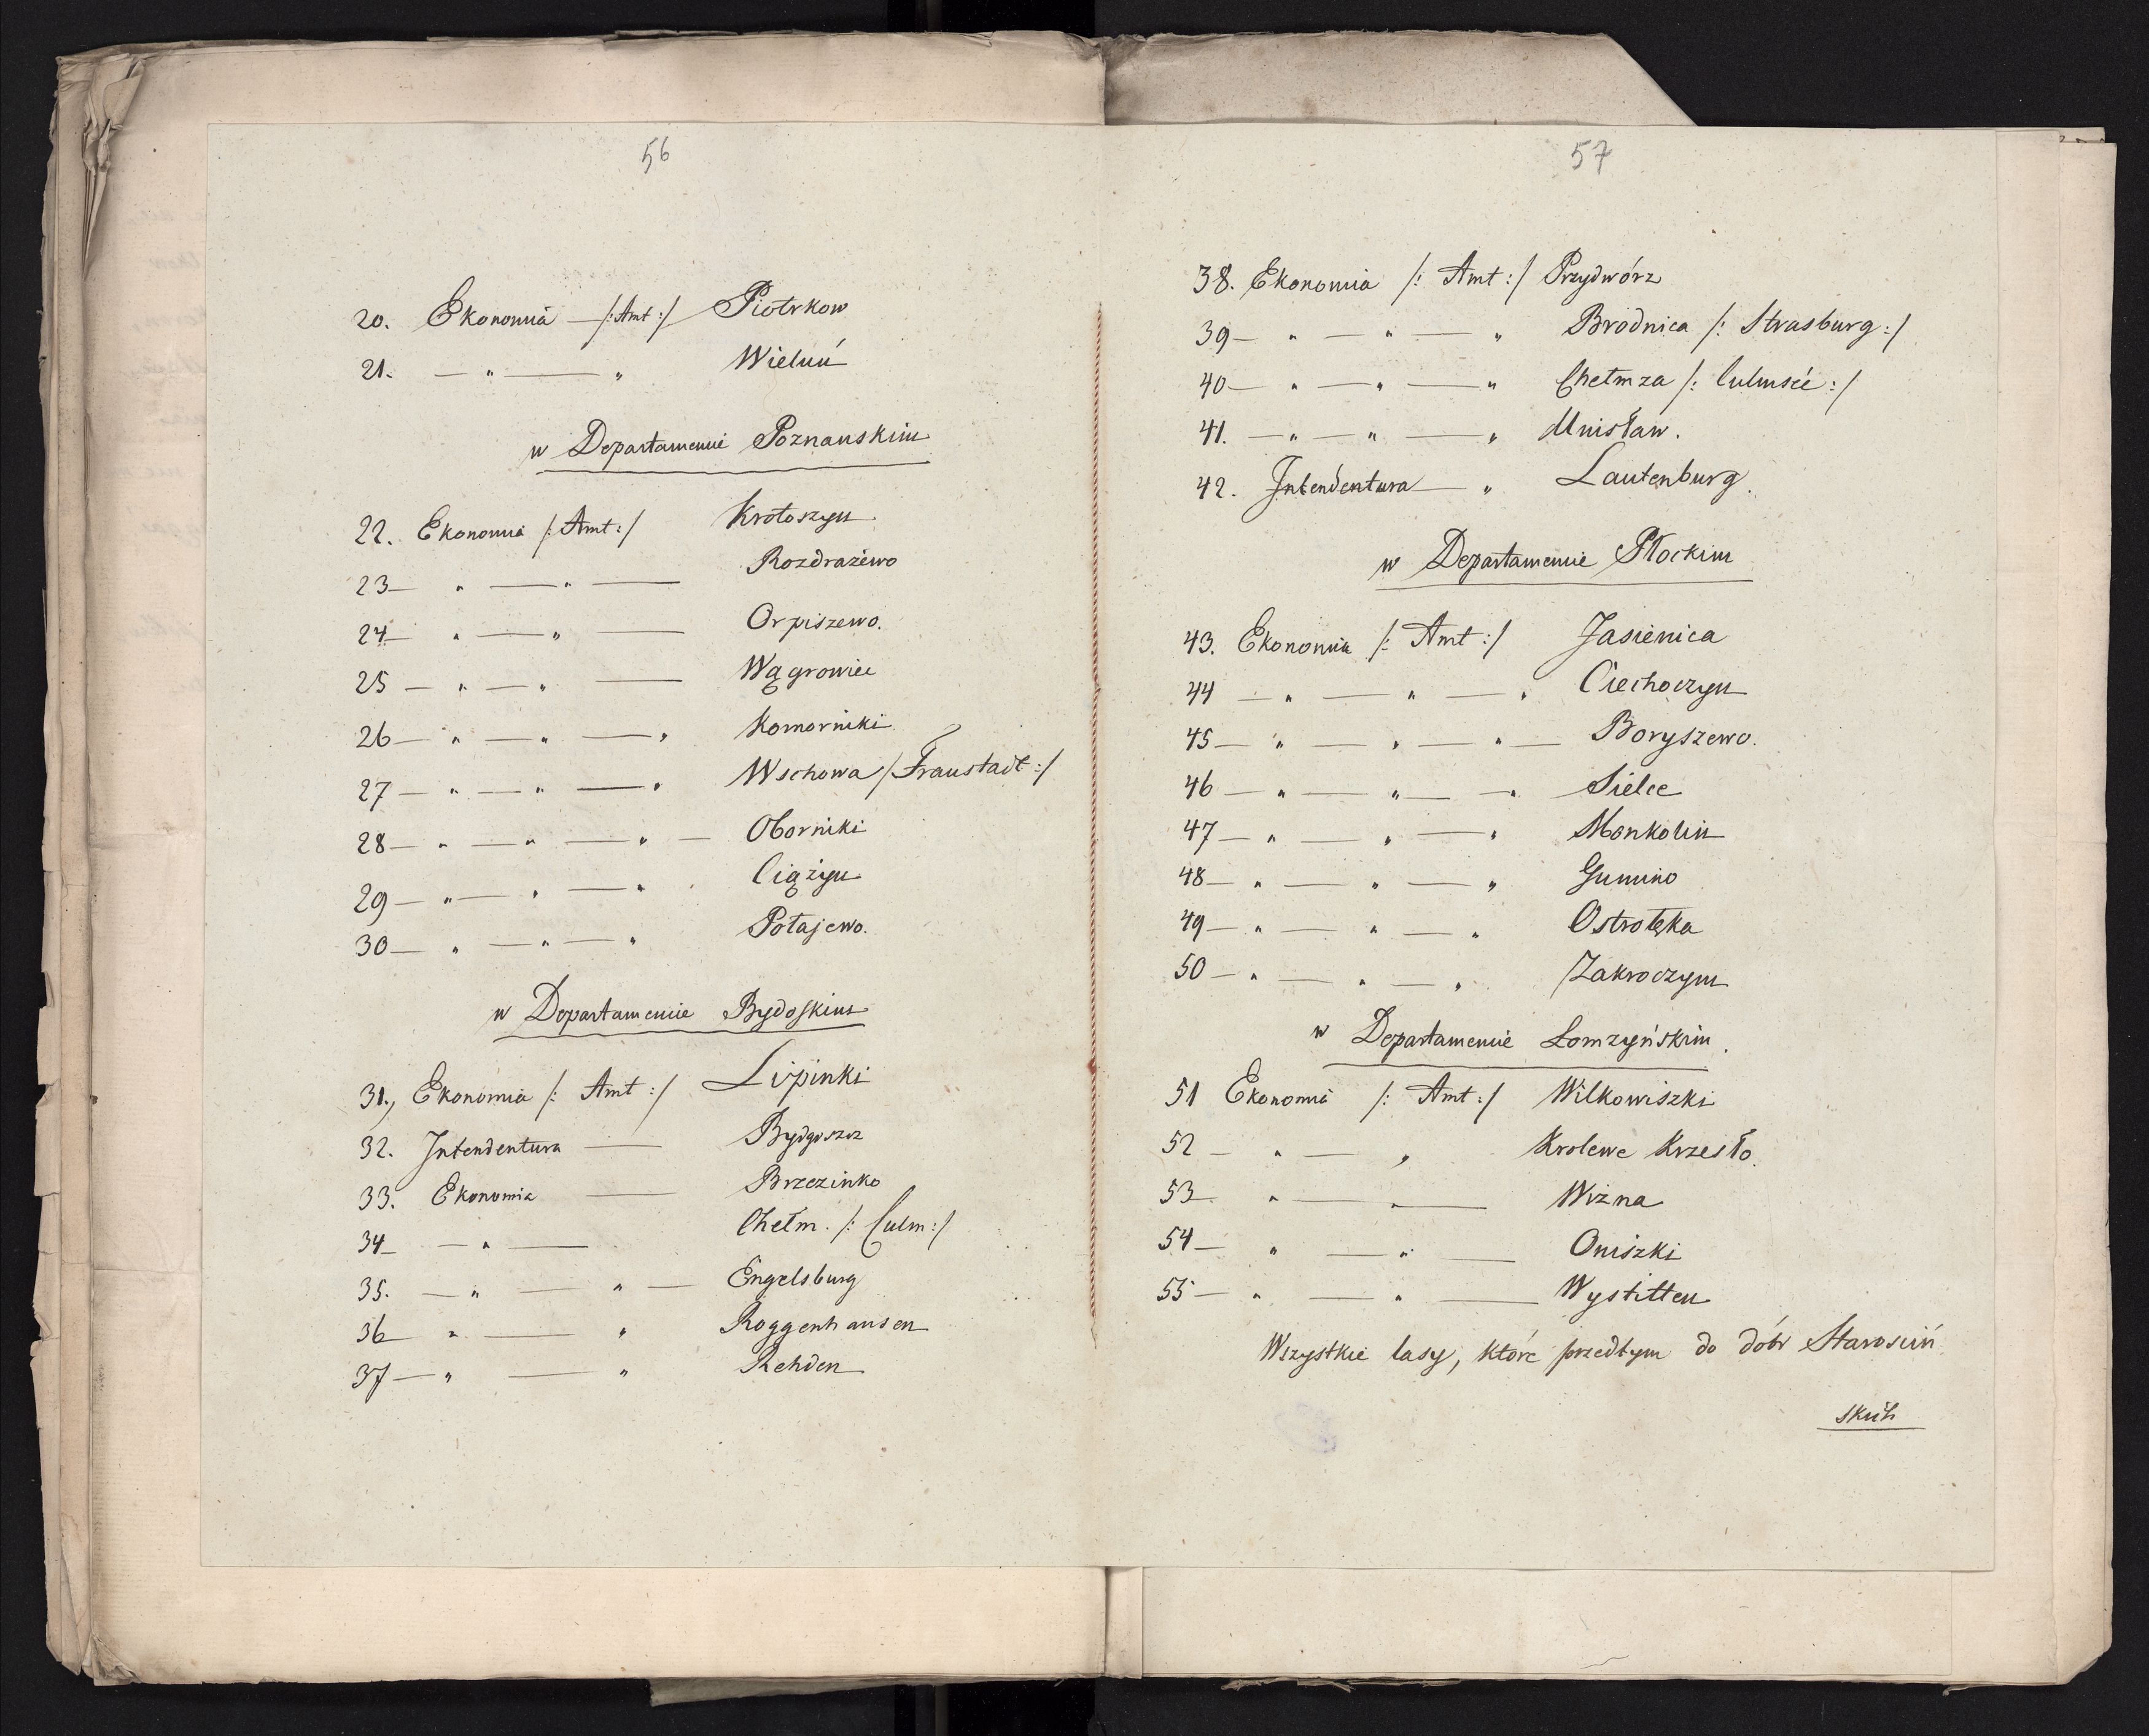 56
20. Ekonomia — /: Amt :/ Piotrkow
21. — " — " Wieluń
w Departamencie Poznanskim
22. Ekonomia /: Amt :/ Krotoszyn
23 — " — " — Rozdrażewo
24 — " — " — Orpiszewo.
25 — " — " — Wągrowiec
26 — " — " — " Komorniki
27 — " — " — " Wschowa /: Fraustadt :/
28 — " — " — " — Oborniki
29 — " — " — " Ciążyn
30 — " — " — " Połajewo.
w Departamencie Bydoskim
31., Ekonomia /: Amt :/ Lipinki
32. Intendentura — Bydgoszcz
33. Ekonomia — Brzezinko
34 — " — Chełm. /: Culm :/
35. — " — " — Engelsburg
36 — " — " Roggenhausen
37 — " — " Rehden
57
38. Ekonomia /: Amt :/ Przydwórz
39 — " — " — " Brodnica /: Strasburg :/
40 — " — " — " Chełmza /: Culmsée :/
41. — " — " — " Unisław.
42. Intendentura — " Lautenburg.
w Departamencie Płockim
43. Ekonomia /: Amt :/ Jasienica
44 — " — " — " Ciechoczyn
45 — " — " — " — Boryszewo.
46 — " — " — " Sielce
47 — " — " — " Monkolin
48 — " — " — " Gumino
49 — " — " — " Ostrołęka
50 — " — " — " Zakroczym
w Departamencie Łomzyńskim.
51 Ekonomia /: Amt :/ Wilkowiszki
52 — " — " Krolewe Krzesło.
53 — " — " — Wizna
54 — " — " — Oniszki
55 — " — " — Wystitten
Wszystkie lasy, które przedtym do dóbr Starościń
skich